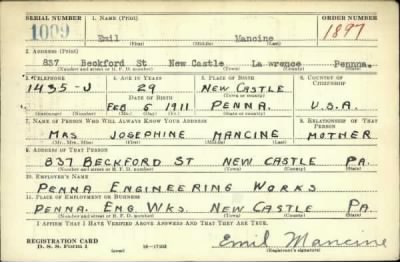 SERIAL NUMBER 1. NAME (Print) ORDER NUMBER
1009 Emil Mancine 1897
(First) (Middle) (Last)
2. ADDRESS (Print)
837 Beckford St New Castle Lawrence Pennna.
(Number and street or R. F. D. number) (Town) (County) (State)
3. TELEPHONE 4. AGE IN YEARS 5. PLACE OF BIRTH 6. COUNTRY OF CITIZENSHIP
1435-J 29 NEW CASTLE
DATE OF BIRTH (Town or county)
FEB 6 1911 PENNA. U.S.A.
(Exchange) (Number) (Mo.) (Day) (Yr.) (State or country)
7. NAME OF PERSON WHO WILL ALWAYS KNOW YOUR ADDRESS 8. RELATIONSHIP OF THAT PERSON
MRS JOSEPHINE MANCINE MOTHER
(Mr., Mrs., Miss) (First) (Middle) (Last)
9. ADDRESS OF THAT PERSON
837 BECKFORD ST NEW CASTLE PA.
(Number and street or R. F. D. number) (Town) (County) (State)
10. EMPLOYER'S NAME
PENNA ENGINEERING WORKS
11. PLACE OF EMPLOYMENT OR BUSINESS
PENNA. ENG. WKS. NEW CASTLE PA
(Number and street or R. F. D. number) (Town) (County) (State)
I AFFIRM THAT I HAVE VERIFIED ABOVE ANSWERS AND THAT THEY ARE TRUE.
REGISTRATION CARD
D. S. S. Form 1 (over) Emil Mancine
(Registrant's signature)